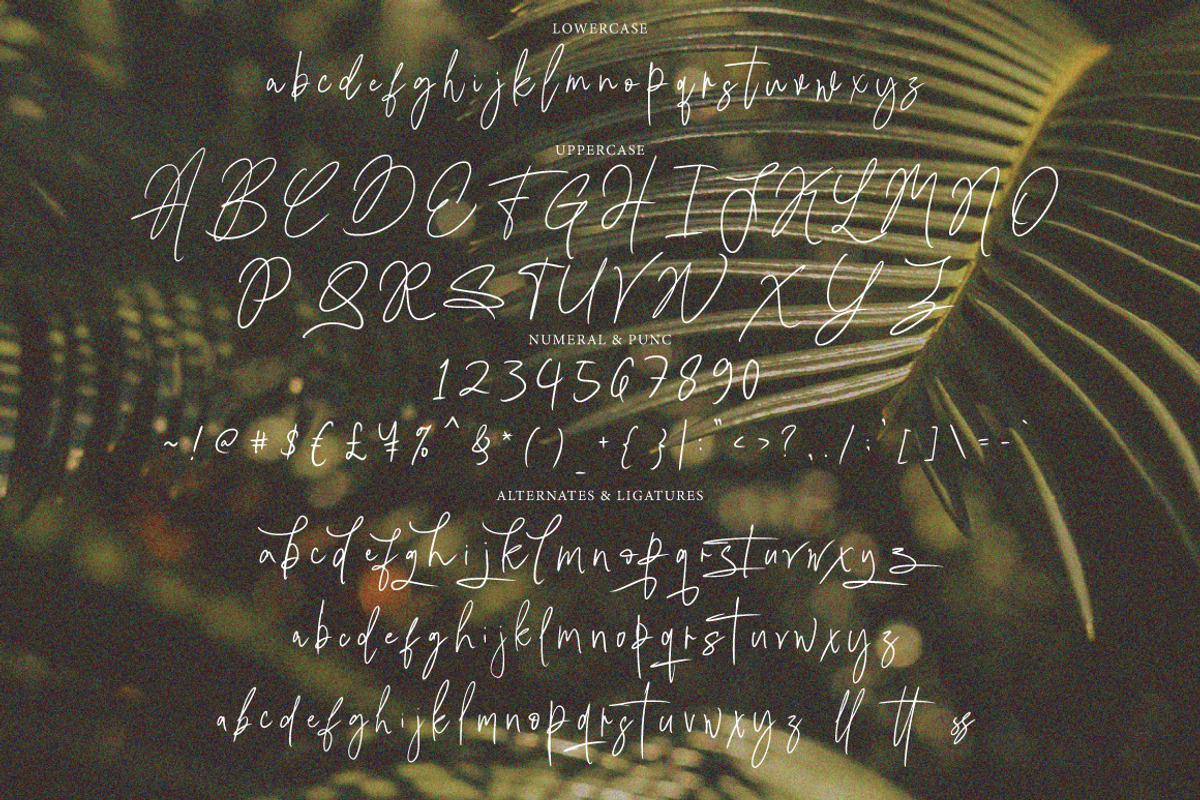 LOWERCASE
abcdefghijklmnopqrstuvwxyz
UPPERCASE
ABCDEFGHIJKLMNO
PQRSTUVWXYZ
NUMERAL & PUNC
1234567890
~!@#$€£¥%^&*()_+{}|:"<>?,./;'[]\=-`
ALTERNATES & LIGATURES
abcdefghijklmnopqrstuvwxyz
abcdefghijklmnopqrstuvwxyz
abcdefghijklmnopqrstuvwxyz ll tt ss